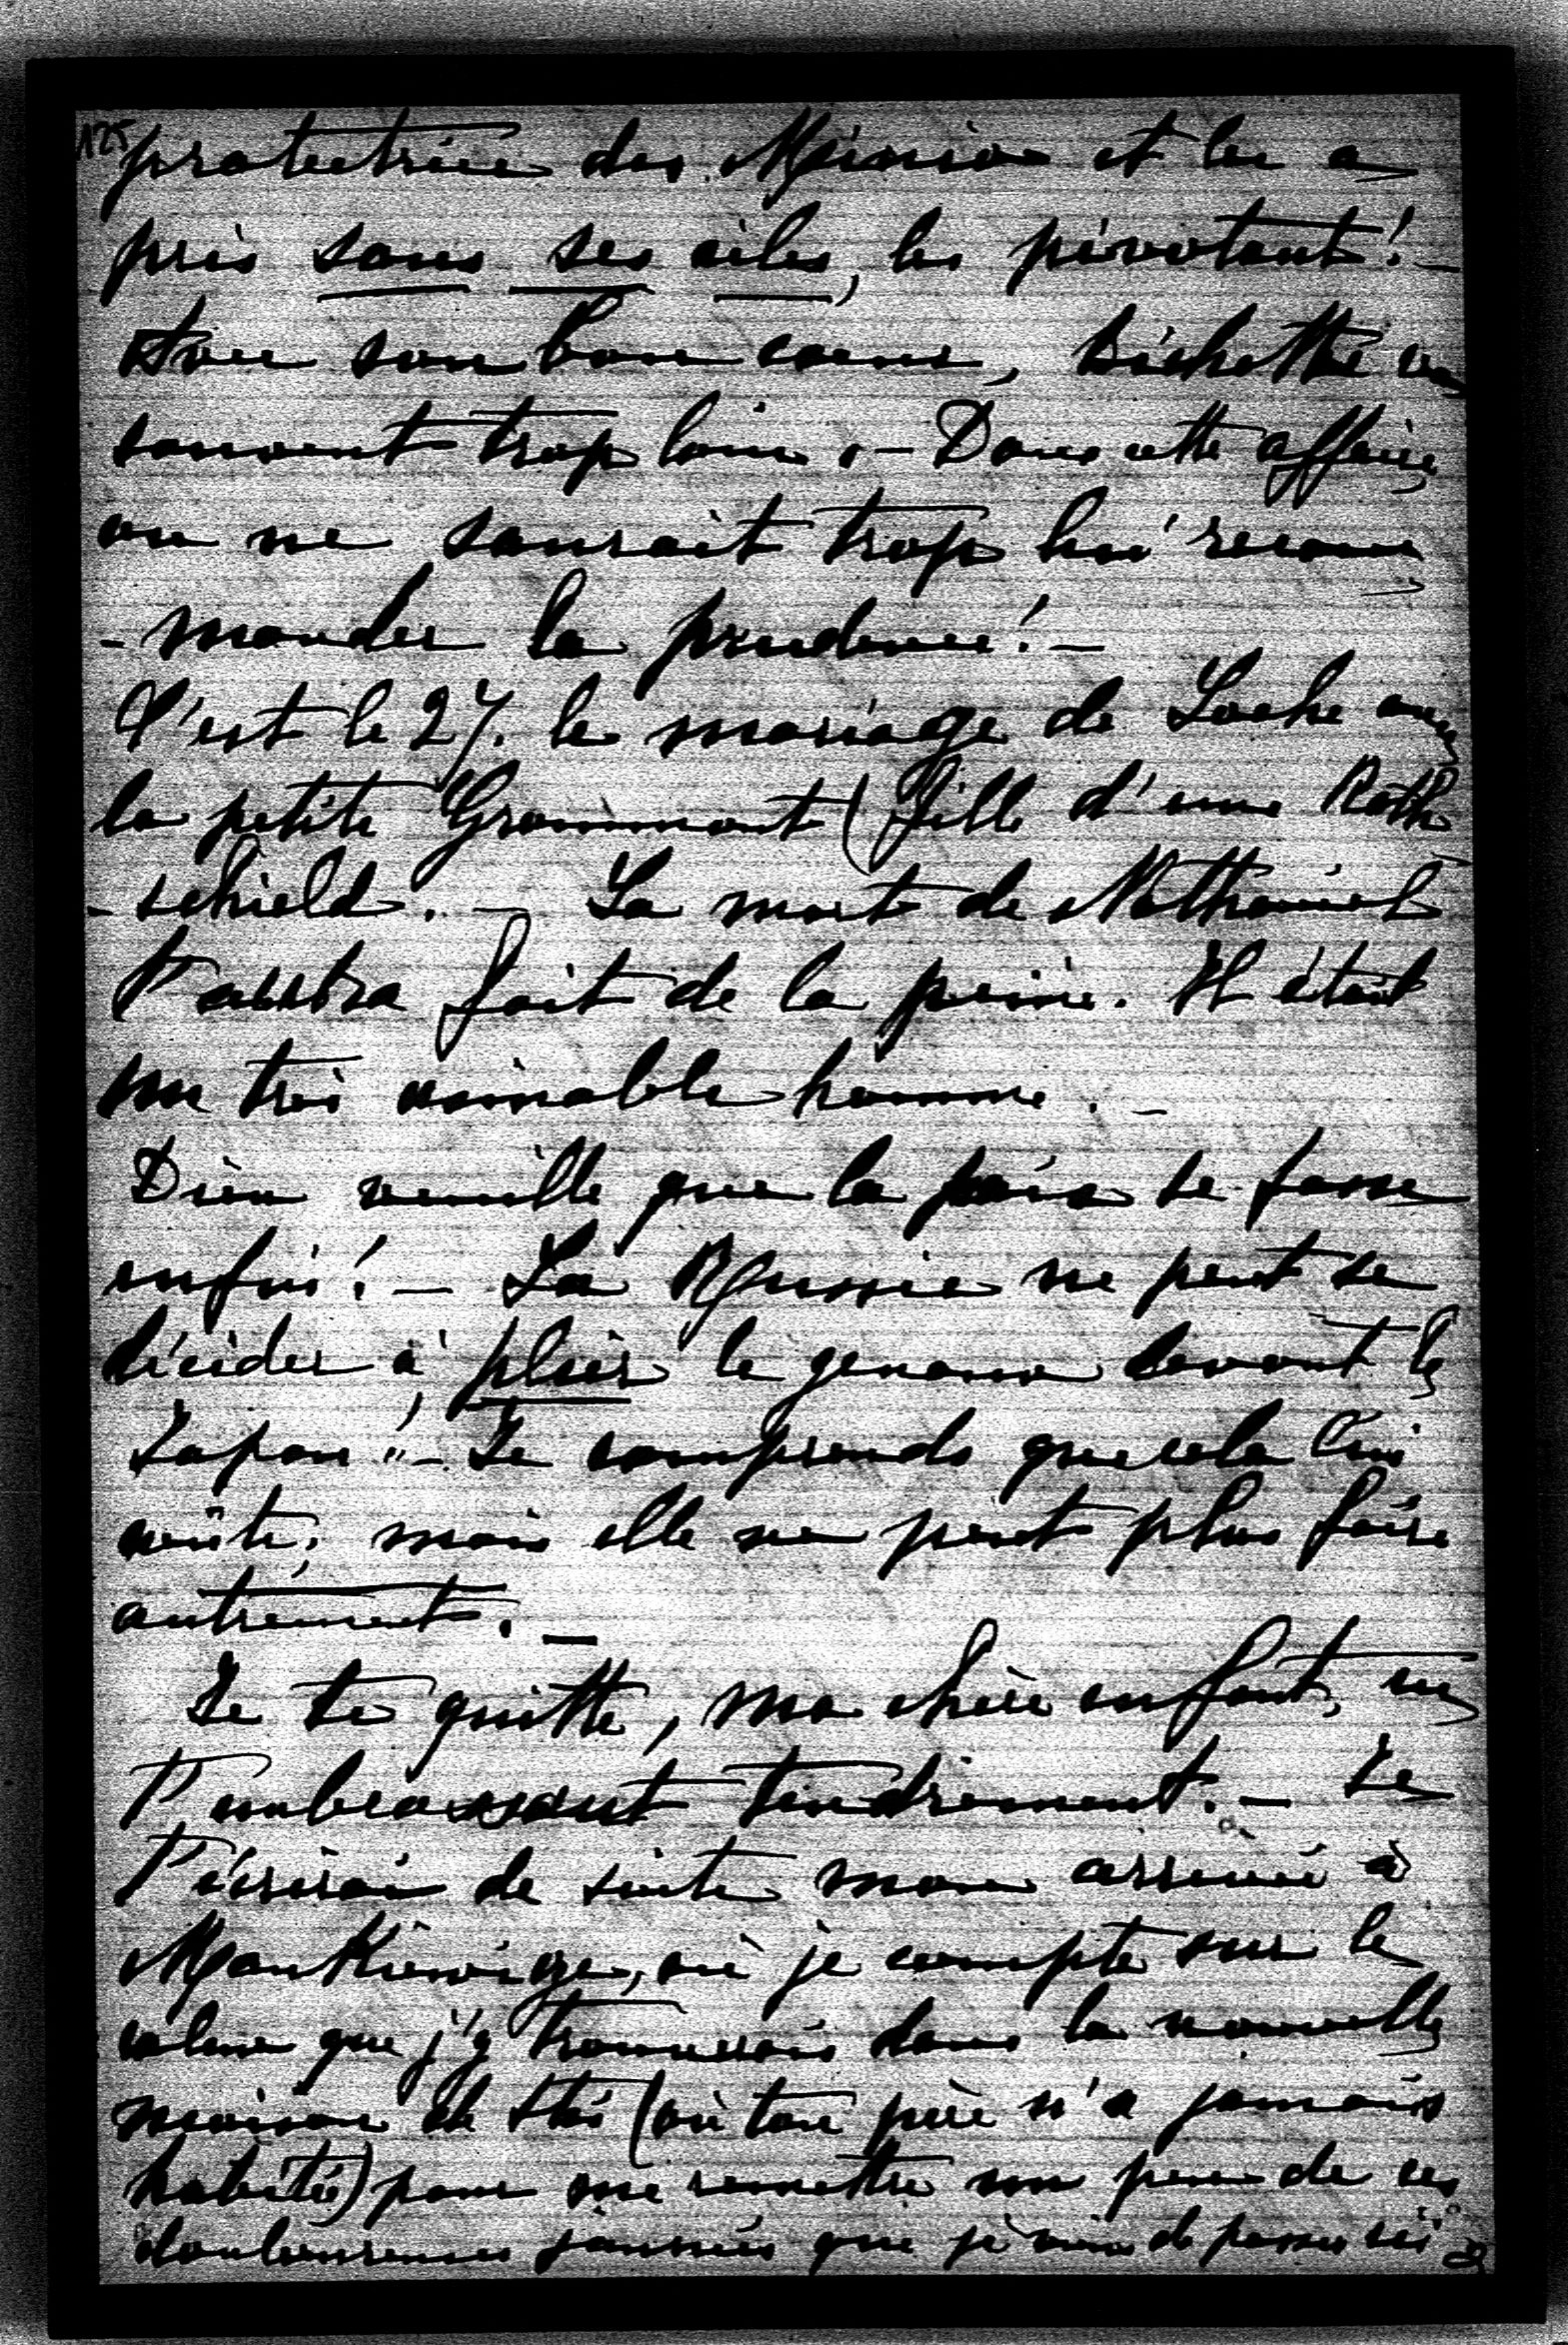 125
protectrice des Minios et les a
pris sous ses ailes, les pivotant! -
Avec son bon coeur, Bichette va
souvent trop loin. - Dans cette affaire
on ne saurait trop lui recom
- mander la prudence! -
C'est le 27. le mariage de Loche avec
la petite Grammont (fille d'une Roth
- schild. - La mort de Nathaniel
t'aura fait de la peine. Il était
un très aimable homme. -
Dieu veuille que la paix se fasse
enfin! - La Russie ne peut se
décider à plier le genoux devant le
Japon!! - Je comprends que cela lui
coûte; mais elle ne peut plus faire
autrement. -
Je te quitte, ma chère enfant, en
t'embrassant tendrement. - Je
t'écrirai de suite mon arrivée à
Mankiewicze, où je compte sur le
calme que j'y trouverais dans la nouvelle
maison de Stas (où ton père n'a jamais
habité) pour me remettre un peu de ces
douloureuses journées que je viens de passer ici